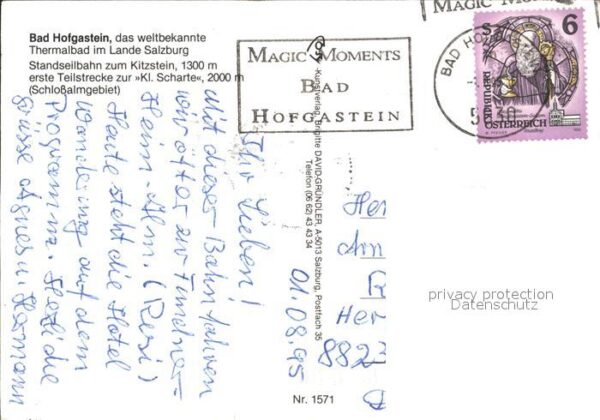 Bad Hofgastein, das weltbekannte
Thermalbad im Lande Salzburg
Standseilbahn zum Kitzstein, 1300 m
erste Teilstrecke zur »Kl. Scharte«, 2000 m
(Schloßalmgebiet)
MAGIC MOMENTS
BAD
HOFGASTEIN
MAGIC MOMEN
BAD HOF
5630
S 6
REPUBLIK
ÖSTERREICH
-Kunstverlag, Brigitte DAVID-GRÜNDLER, A-5013 Salzburg, Postfach 35
Telefon (06 62) 43 43 34
01.08.95
Ihr Lieben!
Mit dieser Bahn fahren
wir öfter zur Fundner=
Heim-Alm. (Resi)
Heute steht die Hotel
Wanderung auf dem
Programm. Herzliche
Grüsse Agnes u. Hermann
Her
An
Her
8822
privacy protection
Datenschutz
Nr. 1571